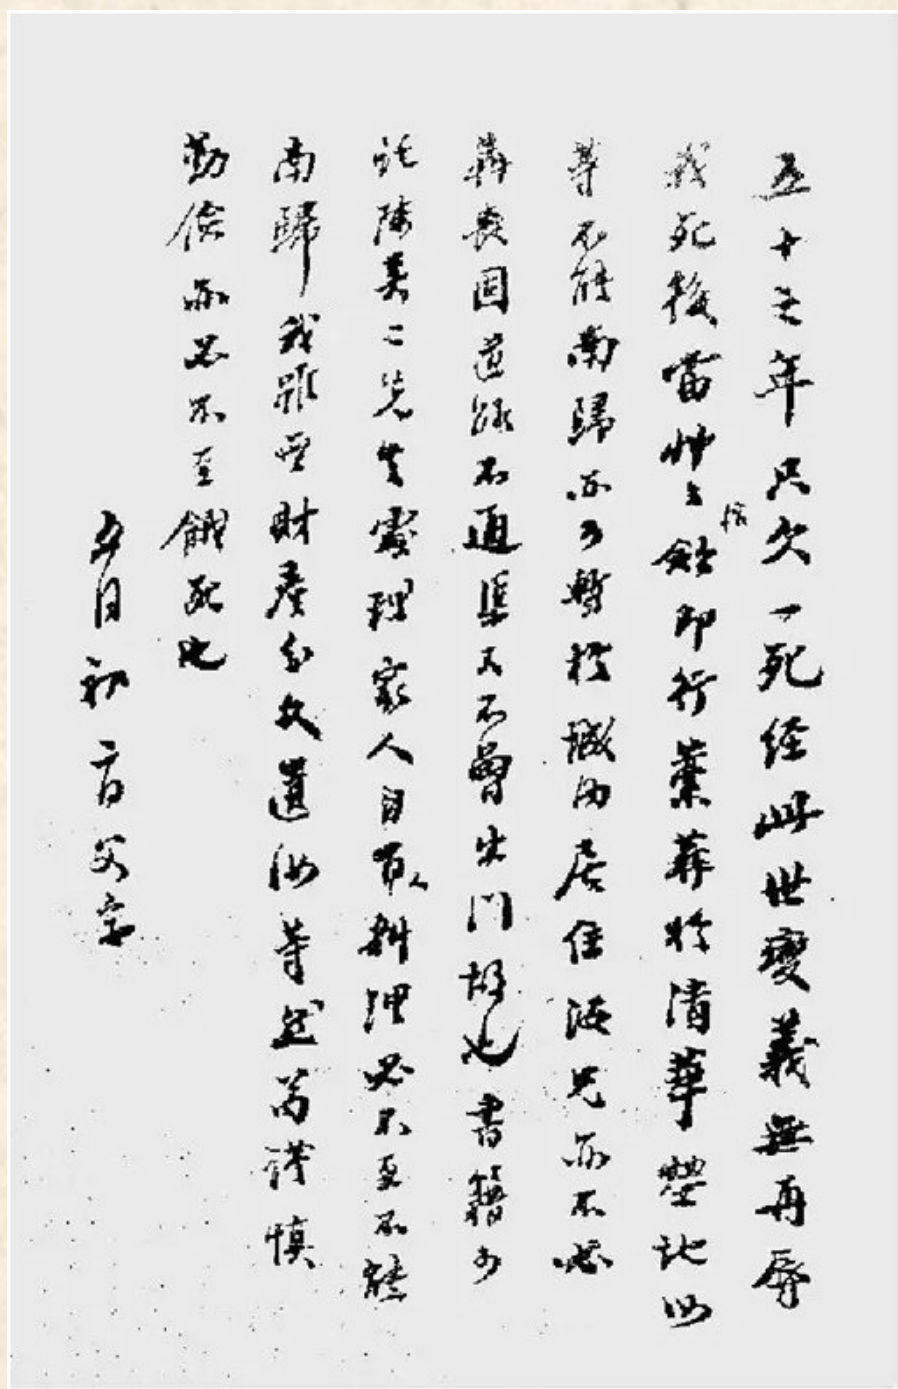 五十之年只欠一死經此世變義無再辱
我死後當艸艸棺歛即行藁葬於清華塋地汝
等不能南歸亦可暫於城內居住汝兄亦不必
奔喪因道路不通渠又不曾出門故也書籍可
託陳吳二先生處理家人自有人料理必不至不能
南歸我雖無財產分文遺汝等然苟謹慎
勤儉亦必不至餓死也
五月初二日父字